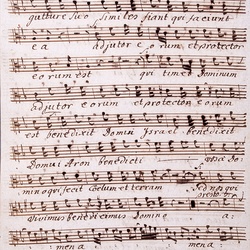 similes fiant qui faciunt
ea adjutor eorum et protector
eorum est qui timet Dominum
adjutor eorum et protector eorum
est benedixit Domui Israel benedixit
Domui Aron benedicti vos a Do
mino qui fecit Coelum et terram Sed nos qui
vivimus benedicimus Domino a:
mena mena